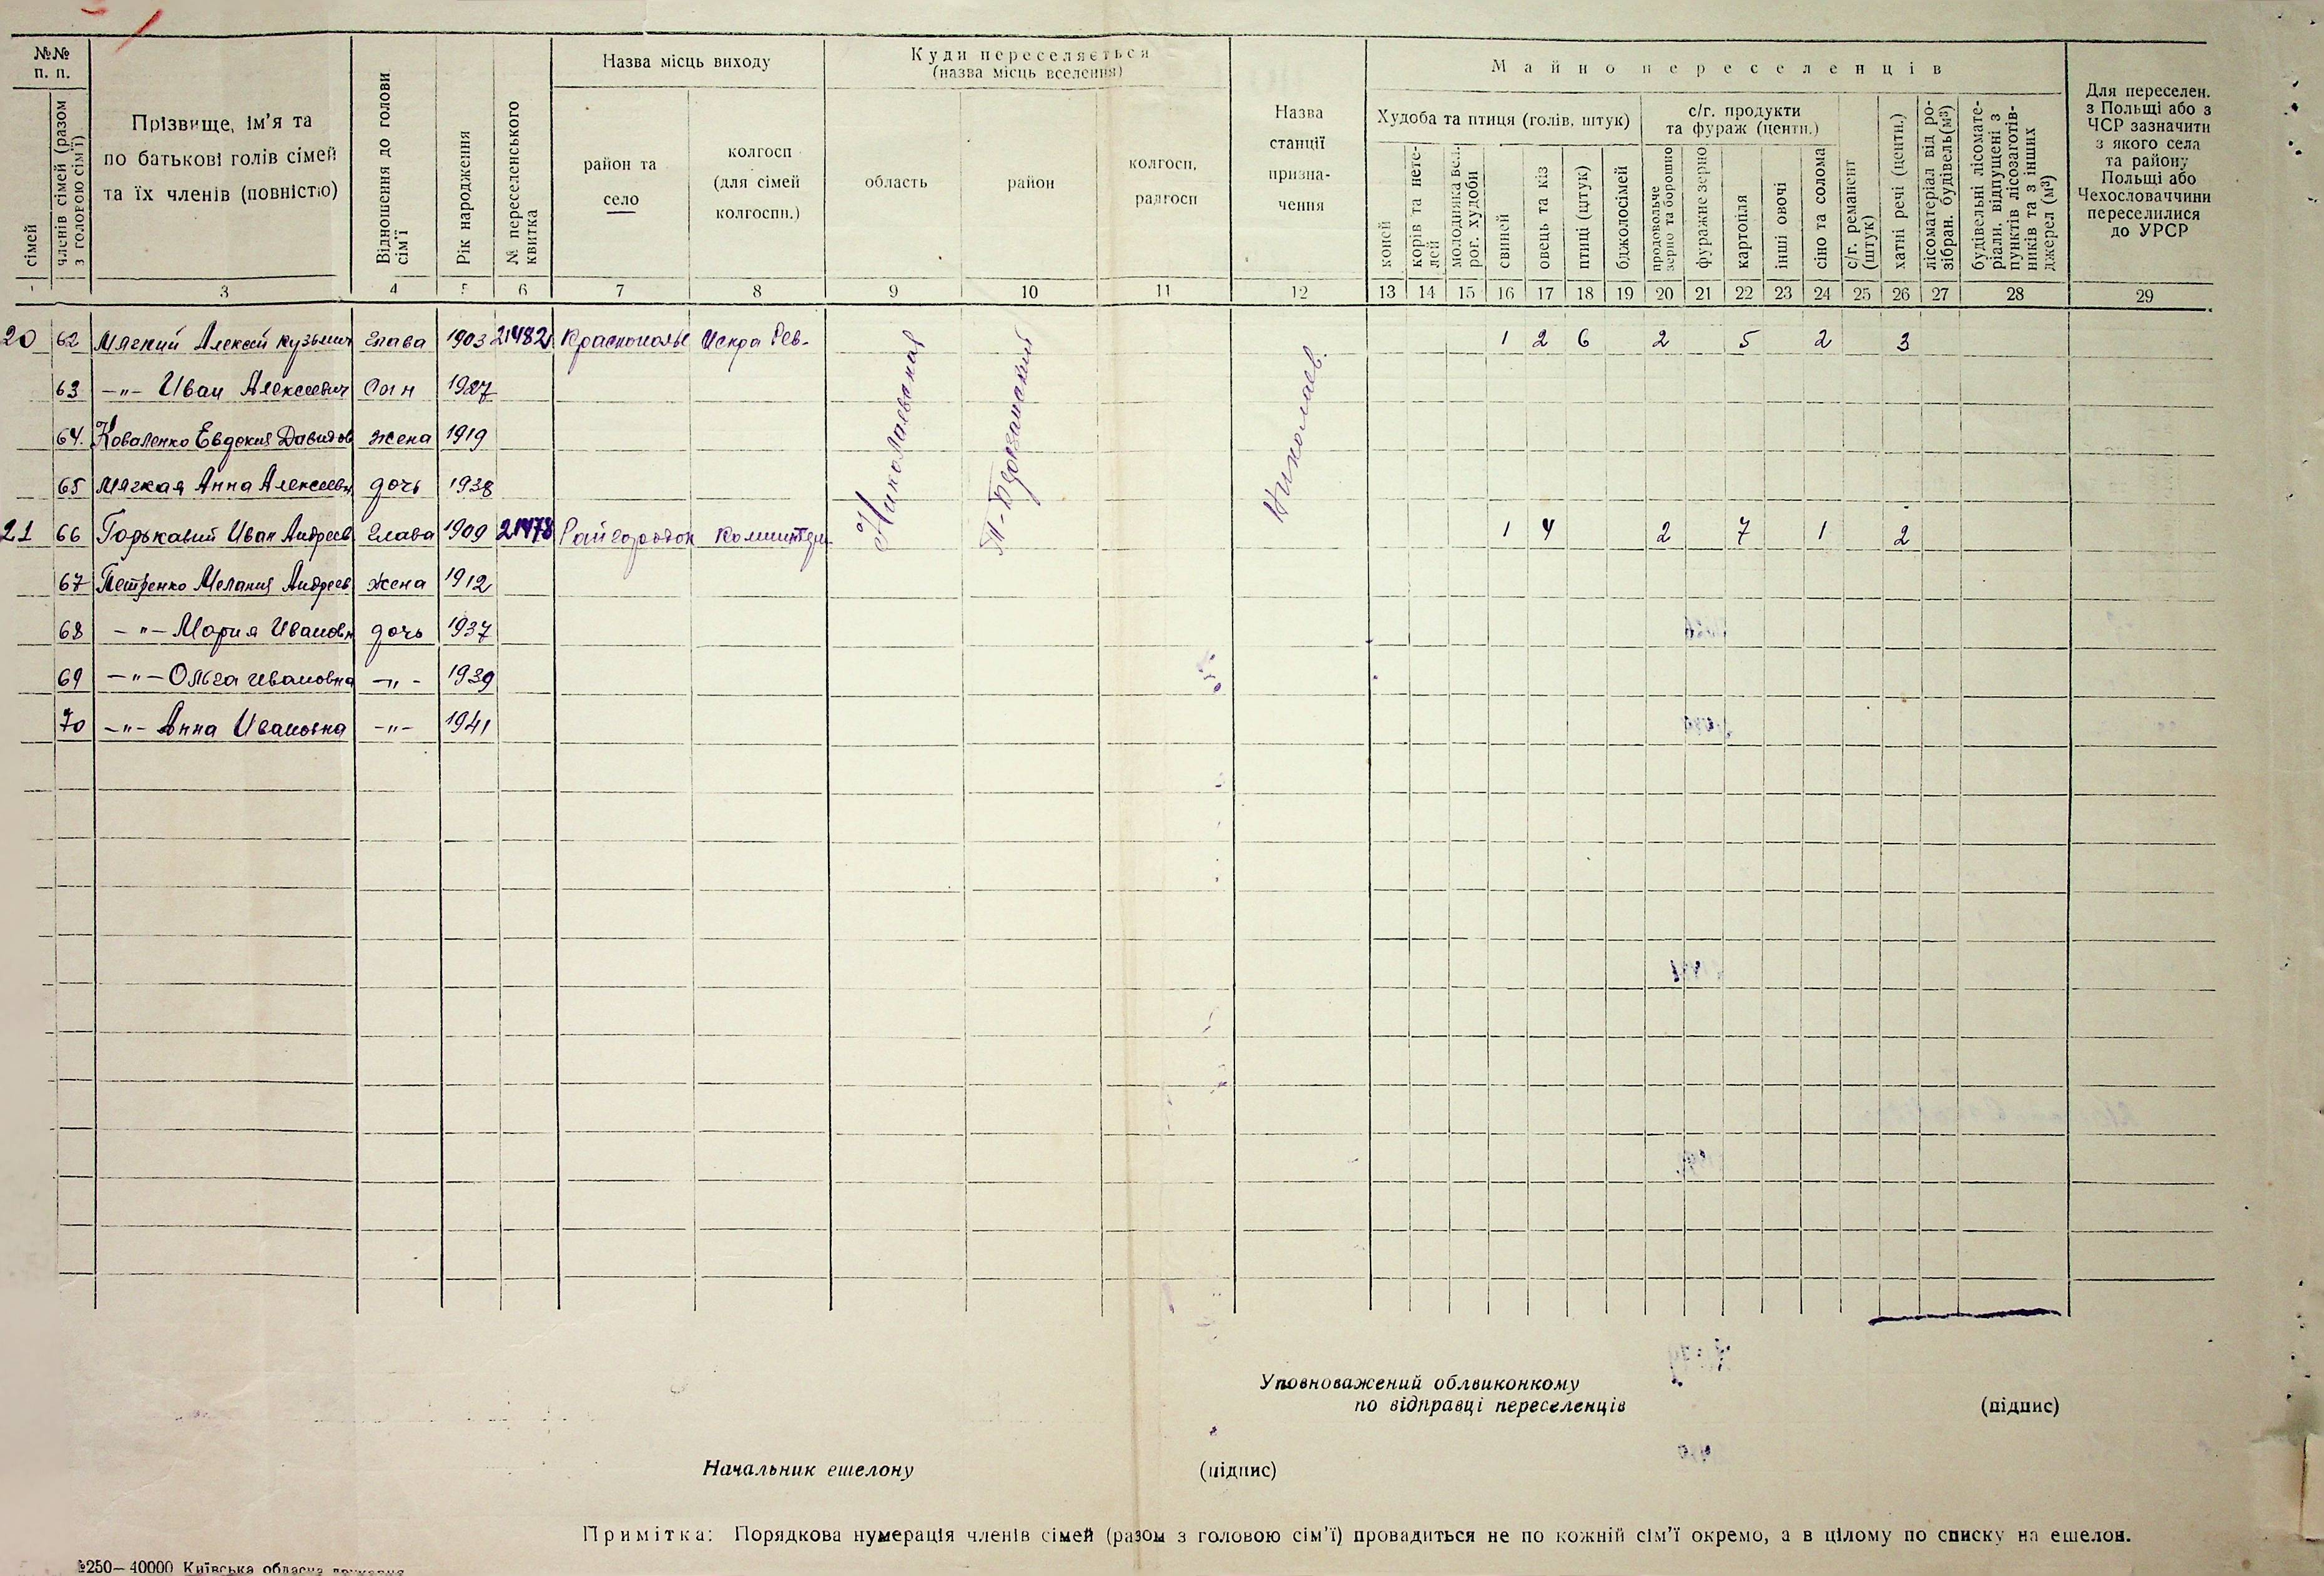 №№ п. п.
сімей
членів сімей (разом з головою сім'ї)
Прізвище, ім'я та
по батькові голів сімей
та їх членів (повністю)
Відношення до голови сім'ї
Рік народження
№ переселенського квитка
Назва місць виходу
район та
село
колгосп
(для сімей
колгоспн.)
Куди переселяється
(назва місць вселення)
область
район
колгосп,
радгосп
Назва
станції
призна-
чення
Майно переселенців
Худоба та птиця (голів, штук)
коней
корів та нете-
лей
молодняка вел.
рог. худоби
свиней
овець та кіз
птиці (штук)
бджолосімей
с/г. продукти
та фураж (центн.)
продовольче
зерно та борошно
фуражне зерно
картопля
інші овочі
сіно та солома
с/г. реманент
(штук)
хатні речі (центн.)
лісоматеріал від ро-
зібран. будівель(м³)
будівельні лісомате-
ріали, відпущені з
пунктів лісозаготів-
ників та з інших
джерел (м³)
Для переселен.
з Польщі або з
ЧСР зазначити
з якого села
та району
Польщі або
Чехословаччини
переселилися
до УРСР
3 4 5 6 7 8 9 10 11 12 13 14 15 16 17 18 19 20 21 22 23 24 25 26 27 28 29
20 62 Мягкий Алексей Кузьмич Глава 1903 21482 Краснополье Искра Рев. 1 2 6 2 5 2 3
63 -"- Иван Алексеевич Сын 1927
64. Коваленко Евдокия Давидов жена 1919
65 Мягкая Анна Алексеевн дочь 1938
21 66 Горькавий Иван Андреев Глава 1909 21478 Райгородок Коминтерн 1 4 2 7 1 2
67 Петренко Мелания Андреев жена 1912
68 -"- Мария Ивановн дочь 1937
69 -"- Ольга Ивановна -"- 1939
70 -"- Анна Ивановна -"- 1941
Николаевская
Т-Березанский
Николаев.
Уповноважений облвиконкому
по відправці переселенців
(підпис)
Начальник ешелону
(підпис)
Примітка: Порядкова нумерація членів сімей (разом з головою сім'ї) провадиться не по кожній сім'ї окремо, а в цілому по списку на ешелон.
№250—40000 Київська обласна друкарня